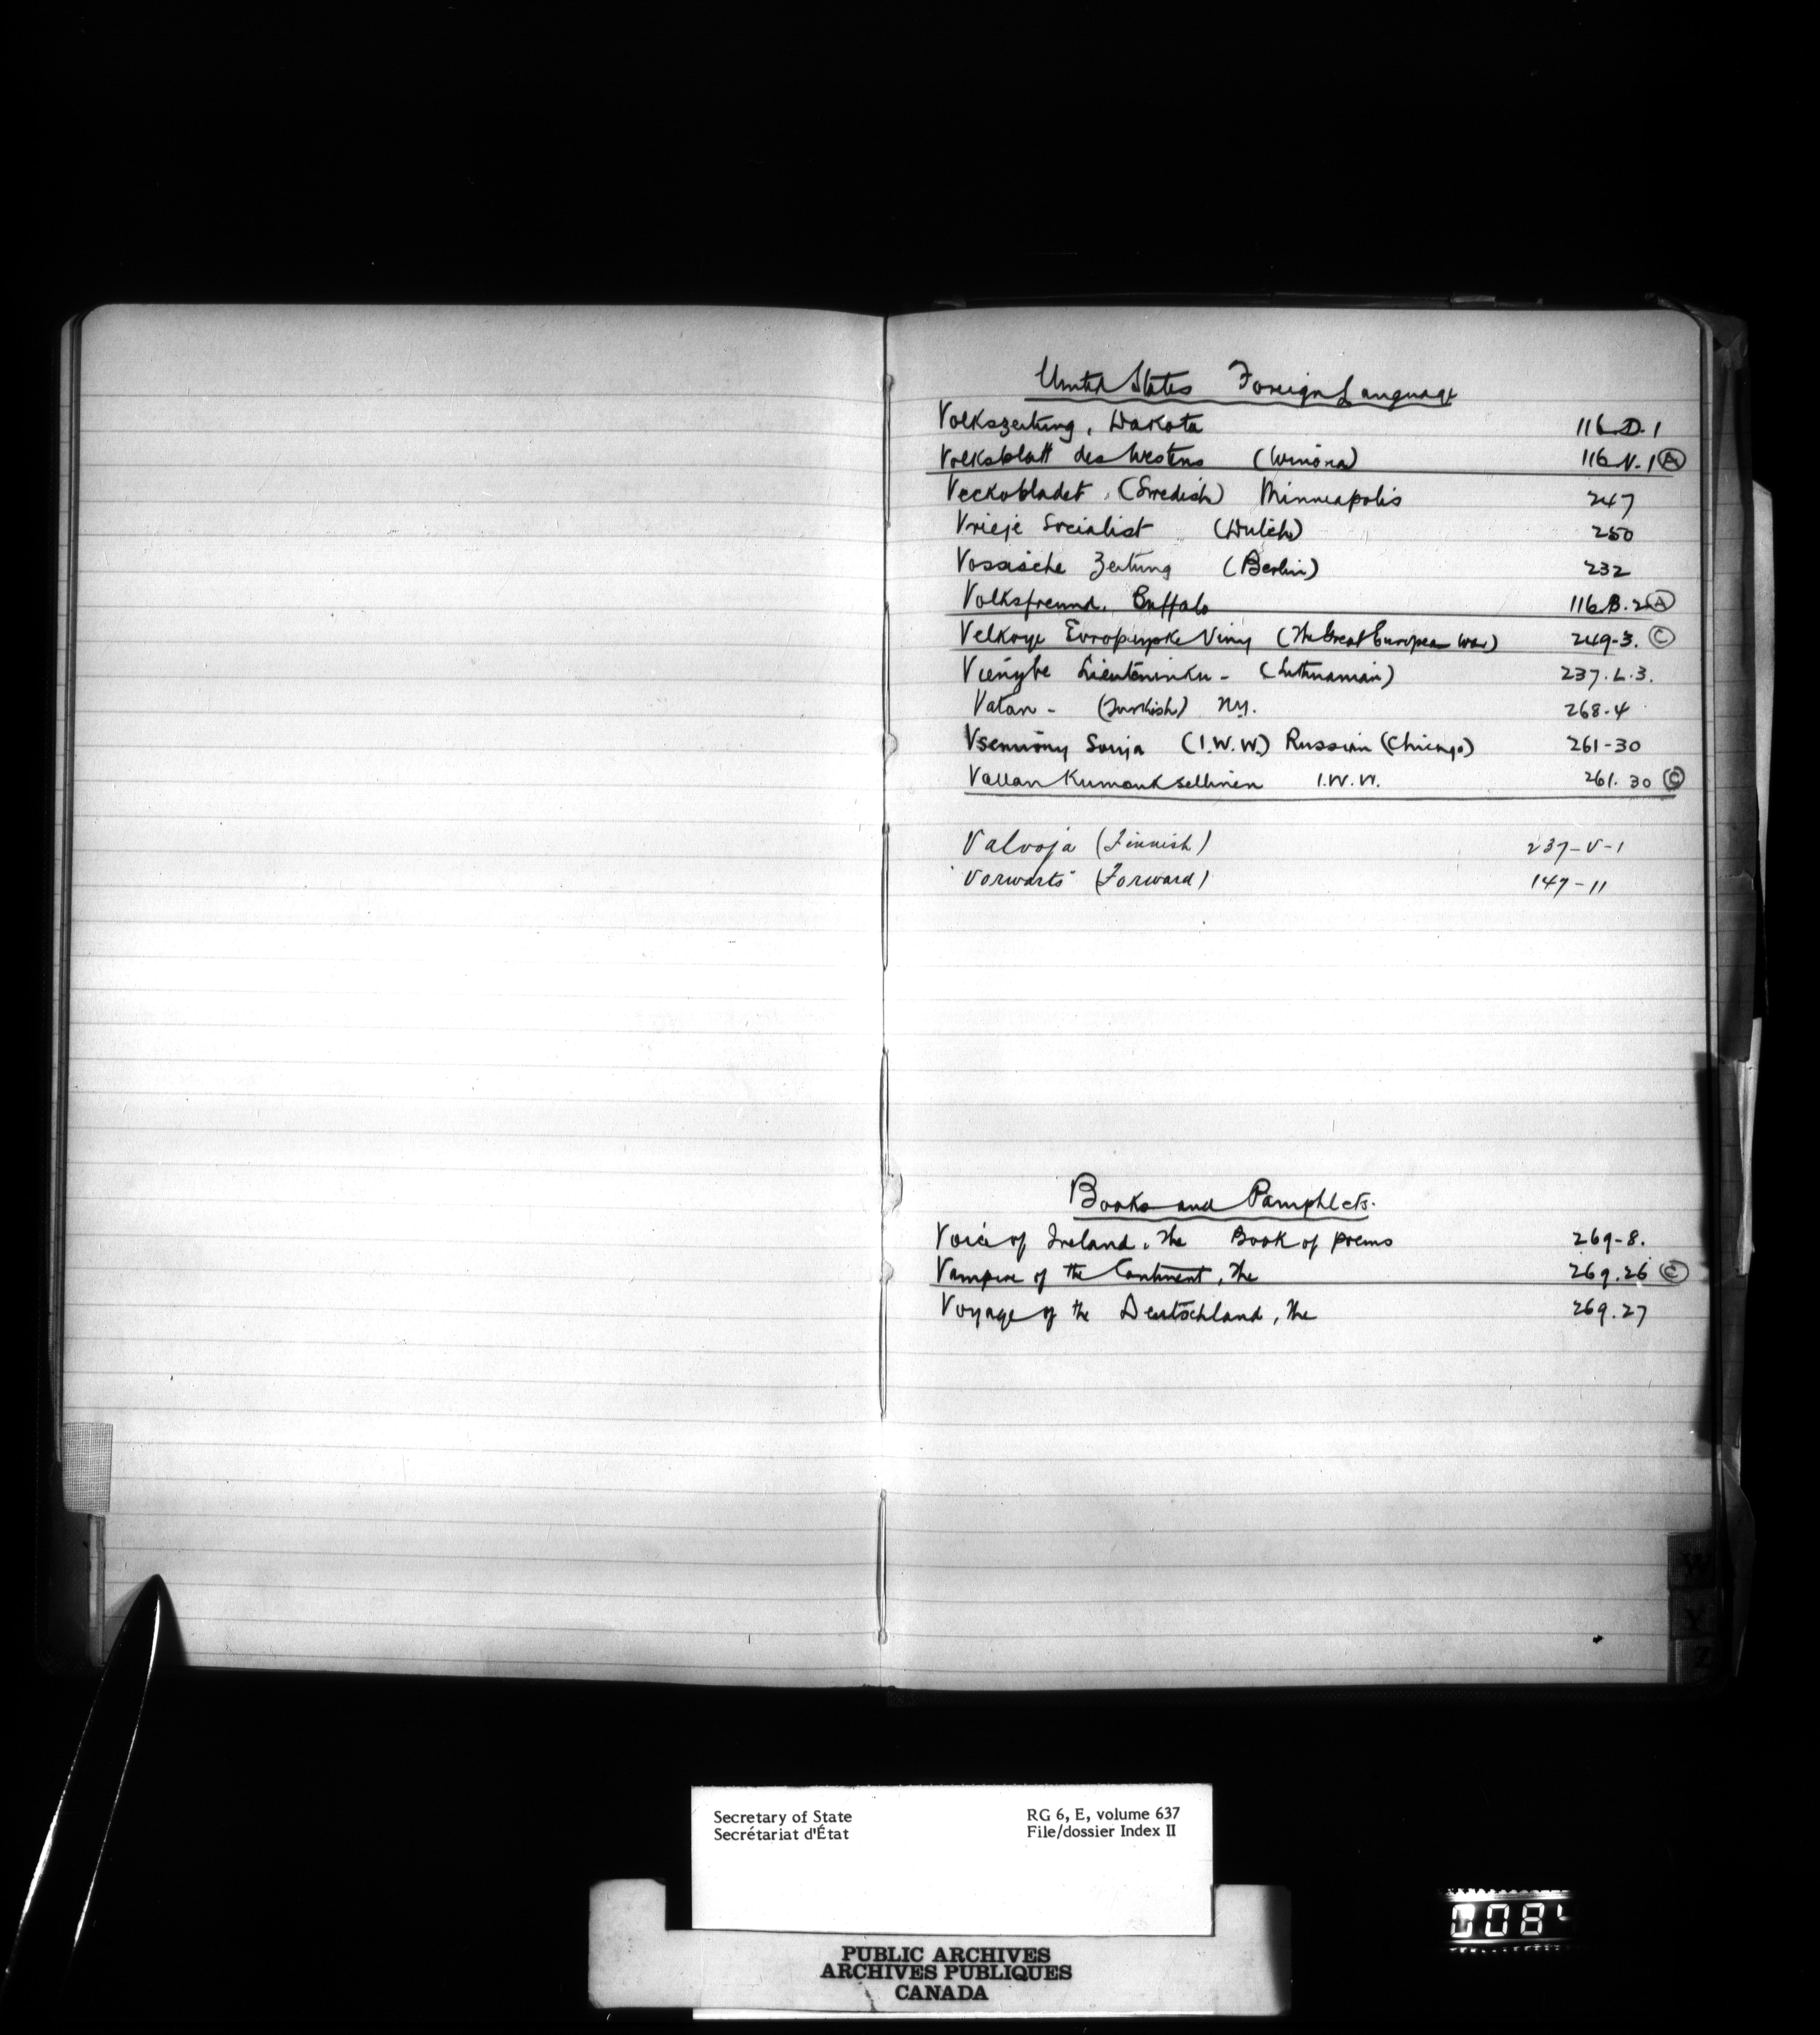 United States Foreign Language
Volkszeitung, Dakota 116.D.1
Volksblatt des Westens (Winona) 116 V.1 Ⓐ
Veckobladet, (Swedish) Minneapolis 247
Vrieje Socialist (Dutch) 250
Vossische Zeitung (Berlin) 232
Volksfreund. Buffalo 116.B.2 Ⓐ
Velkoye Evropeyske Viny (The Great European War) 249-3. Ⓒ
Vienybe Lieuteninku - (Lithuanian) 237.L.3.
Vatan - (Turkish) N.Y. 268-4
Vsemirny Souja (I.W.W.) Russian (Chicago) 261-30
Vallan Kumouksellinen I.W.W. 261.30 Ⓒ
Valvoja (Finnish) 237-V-1
"Vorwarts" (Forward) 147-11
Books and Pamphlets.
Voice of Ireland, The Book of poems 269-8.
Vampire of the Continent, The 269.26 Ⓒ
Voyage of the Deutschland, the 269.27
W
Y
Z
Secretary of State RG 6, E, volume 637
Secrétariat d'État File/dossier Index II
PUBLIC ARCHIVES
ARCHIVES PUBLIQUES
CANADA